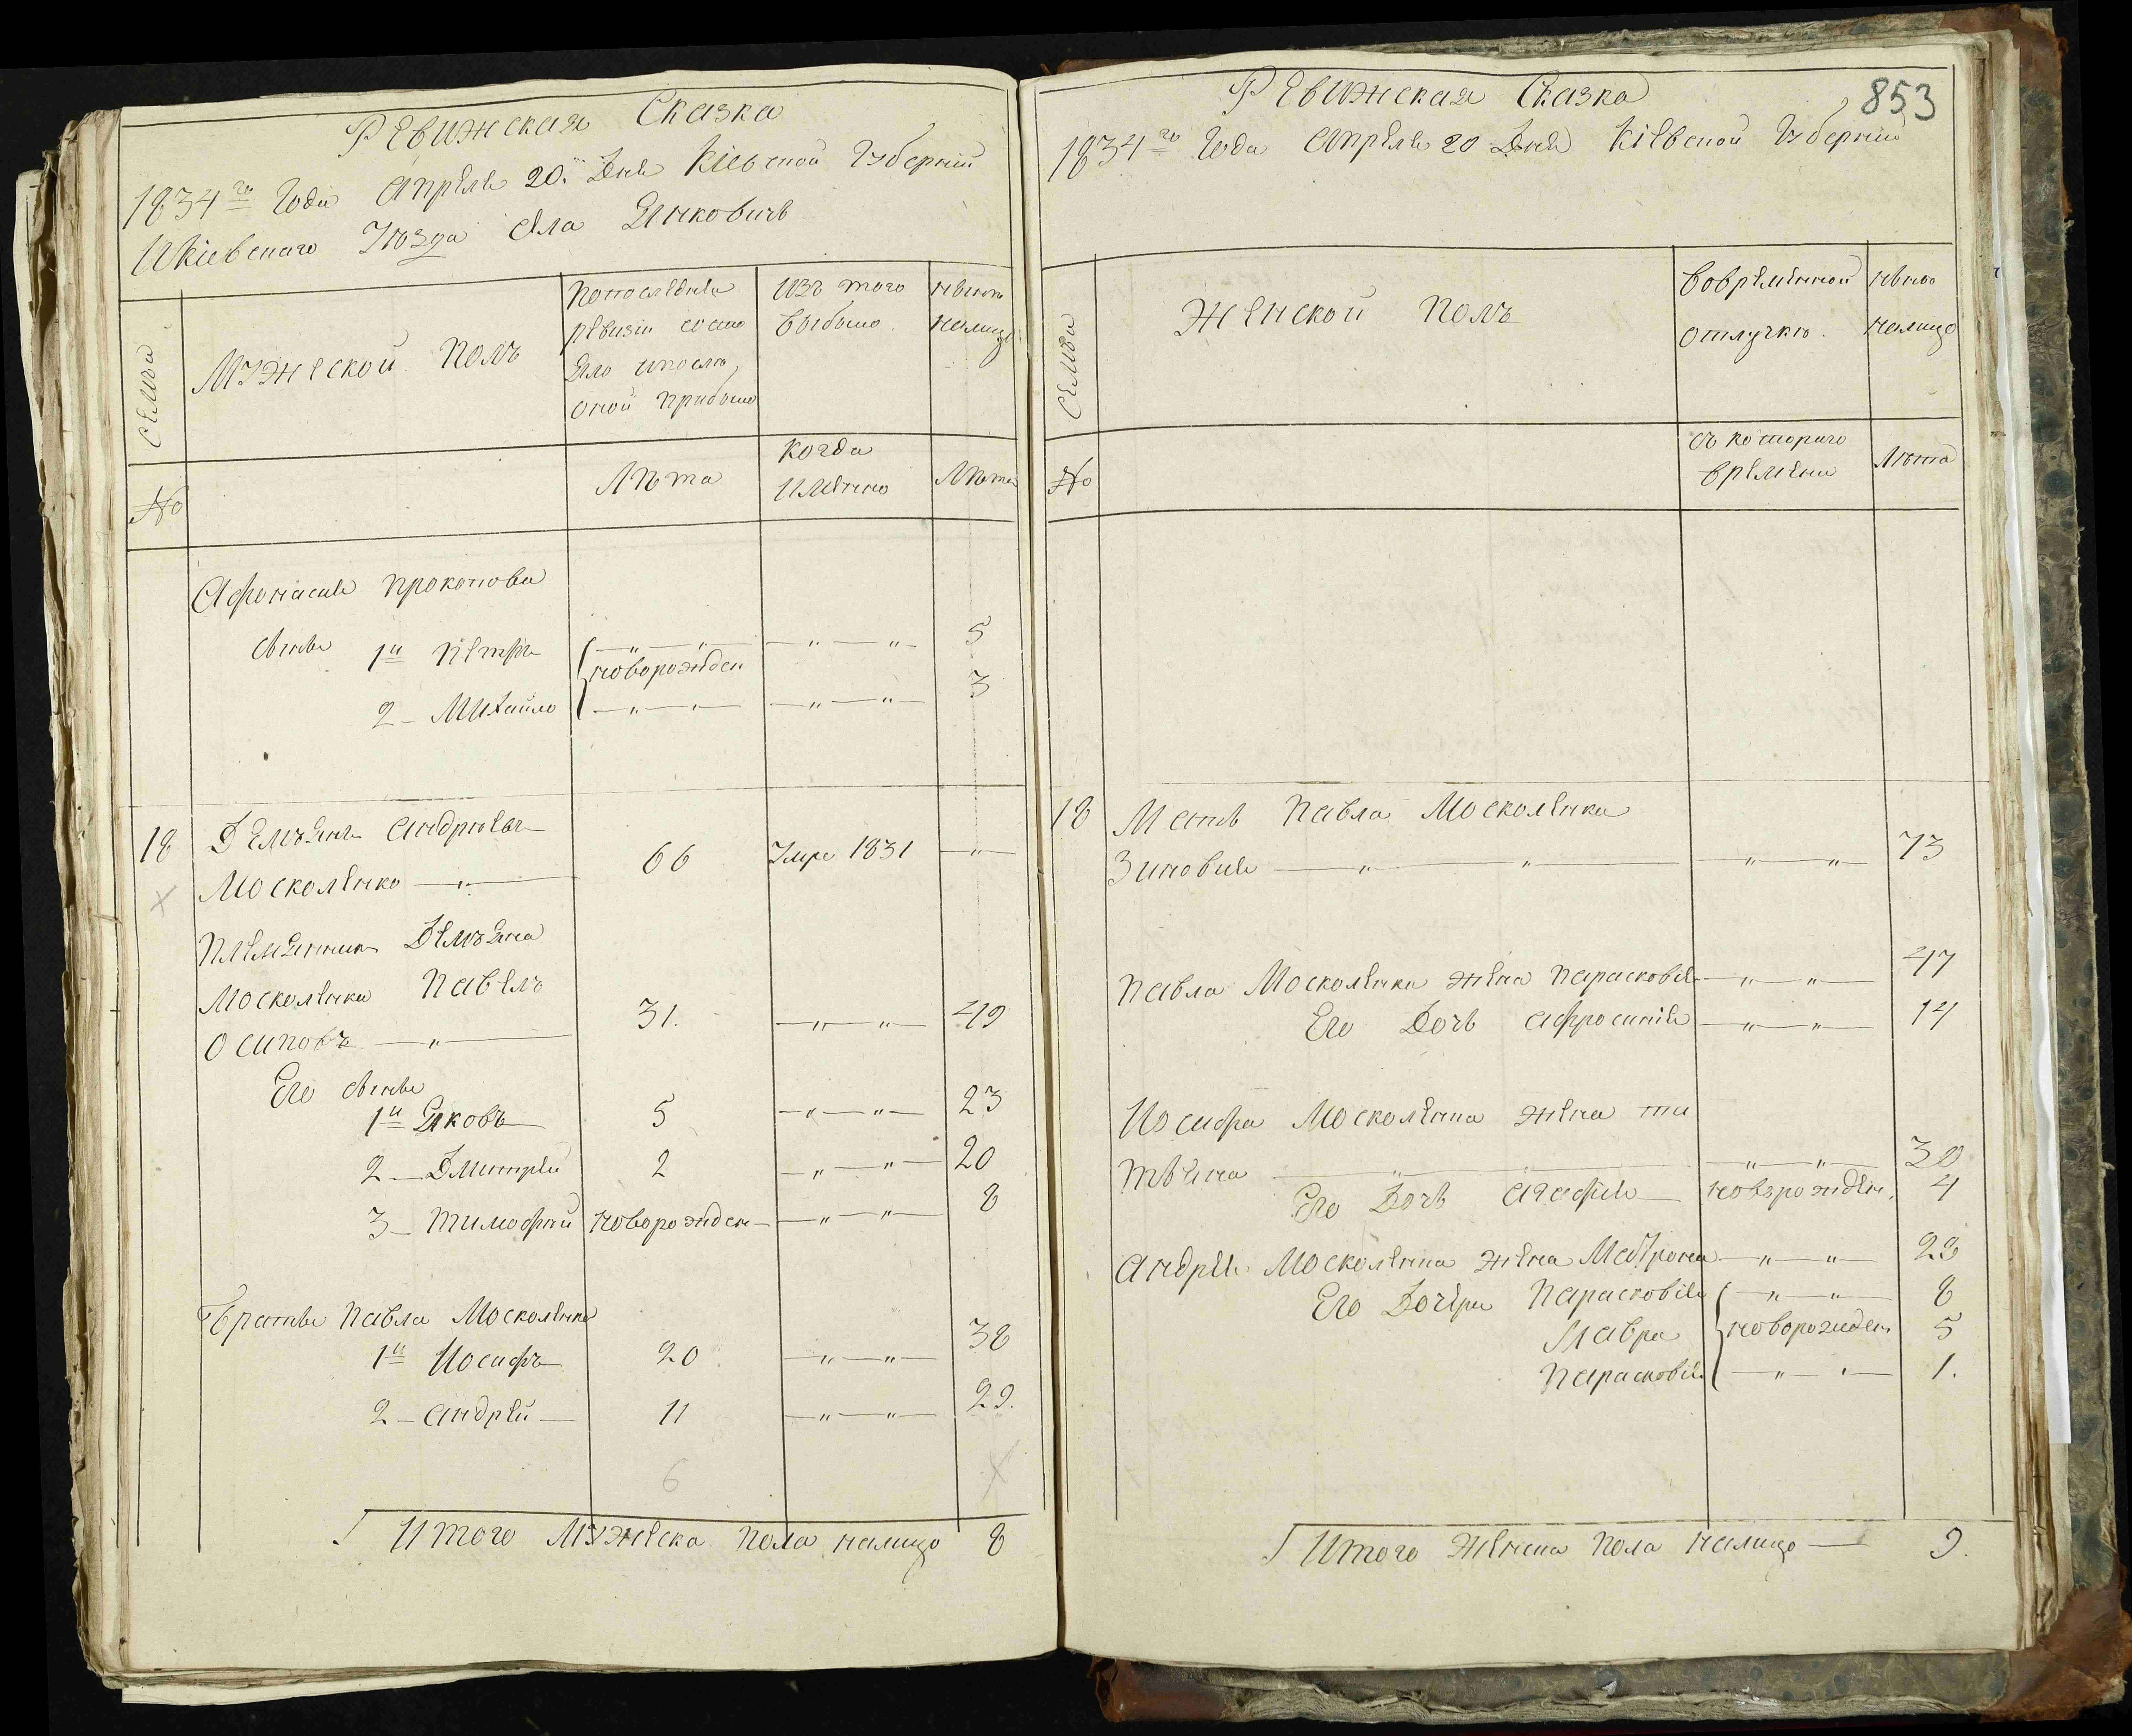 Ревижская Сказка
1834го Года Апреля 20. Дня Кіевской Губерніи
Икіевскаго Уѣзда села Янковичъ
Семьи
Мужеской Полъ
Попоследней
ревизіи состо
яло ипослѣ
оной прибыло
Изъ того
выбыло.
Нынѣ
налицо
№
Лѣта
Когда
имѣнно
Лѣта
Афонасия Прокопова
сынья 1й Пётръ — " — " — — " — " — 5
новорожден
2 — Михайло — " — " — — " — " — 3
18 Демъянъ Андрѣевъ
Москаленко — " — 66 Умре 1831 — " —
Племянникъ Демъяна
Москаленка Павелъ
Осиповъ — " — 31. — " — " — 49
Его сынья
1й Яковъ — 5 — " — " — 23
2 — Дмитрей 2 — " — " — 20
3 — Тимофей новорожден — — " — " — 8
Братья Павла Москаленка
1й Иосифъ — 20 — " — " — 38
2 — Андрей — 11 — " — " — 29.
6
Итого Мужеска пола налицо 8
853
Ревижская Сказка
1834го Года Апреля 20 Дня Кіевской Губерніи
Семьи
Женской Полъ
Вовременной
отлучкѣ.
Нынѣ
налицо
№
съ котораго
времени
Лѣта
18 Мать Павла Москаленка
Зиновия — " — " — — " — " — 73
Павла Москаленка жена Парасковія — " — " — 47
Его Дочь Афросинія — " — " — 14
Иосифа Москаленка жена та
тьяна — " — — " — " — 30
Его Дочь Агафия — новорожден. 4
Андрея Москаленка жена Мотрона — " — " — 29
Его Дочери Парасковія — " — " — 8
Мавра новорожден 5
Парасковія — " — " — 1.
Итого Женска пола налицо — 9.